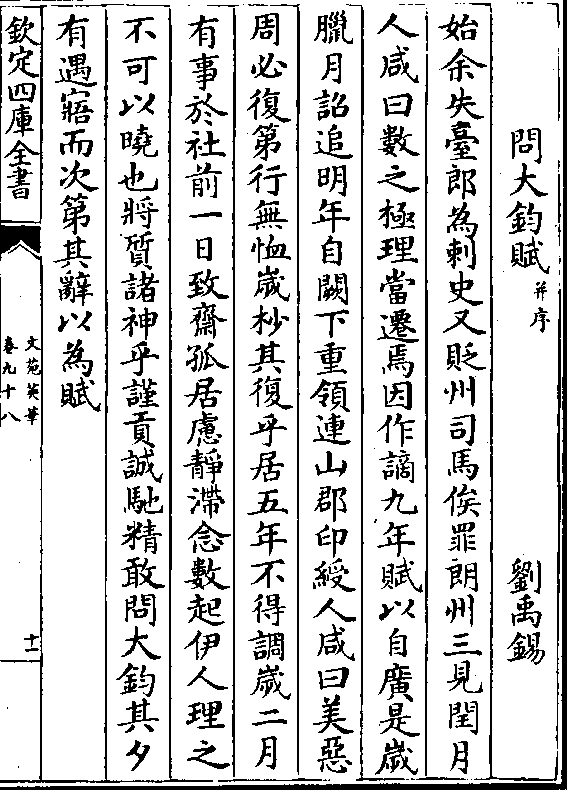 問大鈞賦并序 劉禹錫
始余失臺郎為刺史又貶州司馬俟罪朗州三見閏月
人咸曰數之極理當遷焉因作謫九年賦以自廣是歲
臘月詔追明年自闕下重領連山郡印綬人咸曰美惡
周必復第行無恤歲杪其復乎居五年不得調歲二月
有事於社前一日致齋孤居慮靜滯念數起伊人理之
不可以曉也將質諸神乎謹貢誠馳精敢問大鈞其夕
有遇寤而次第其辭以為賦
欽定四庫全書
文苑英華
卷九十八
十一